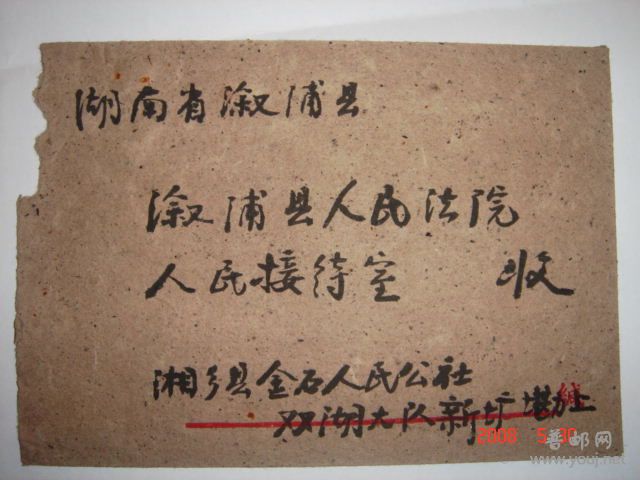 湖南省溆浦县
溆浦县人民法院
人民接待室 收
湘乡县金石人民公社
双湖大队新圹堪上
缄
2008 5 30
普邮网
www.youj.net